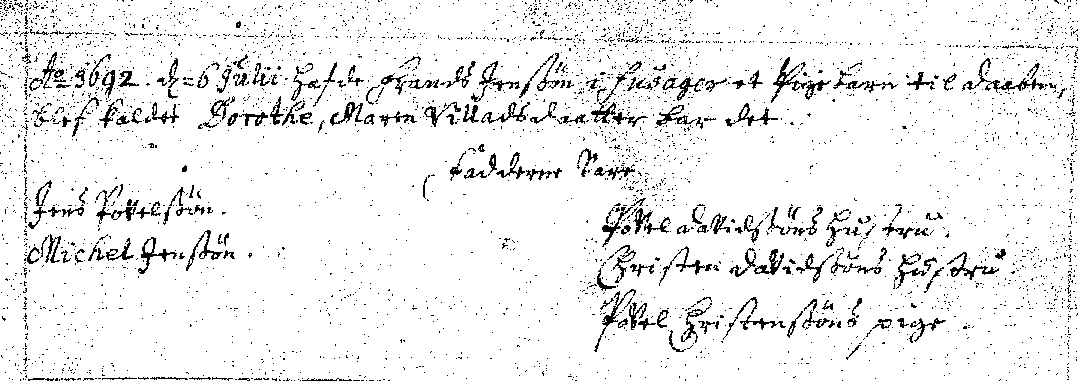 Ao 1692. d. 6 Julii hafde Frands Jenssøn i Husager et Pige barn til daaben,
blef kaldet Dorothe, Maren Villadsdaatter bar det.
Fadderne Vare
Jens Povelssøn.
Michel Jenssøn.
Povel Davidssøns Hustru.
Christen Davidssøns Hustru
Povel Christenssøns pige.